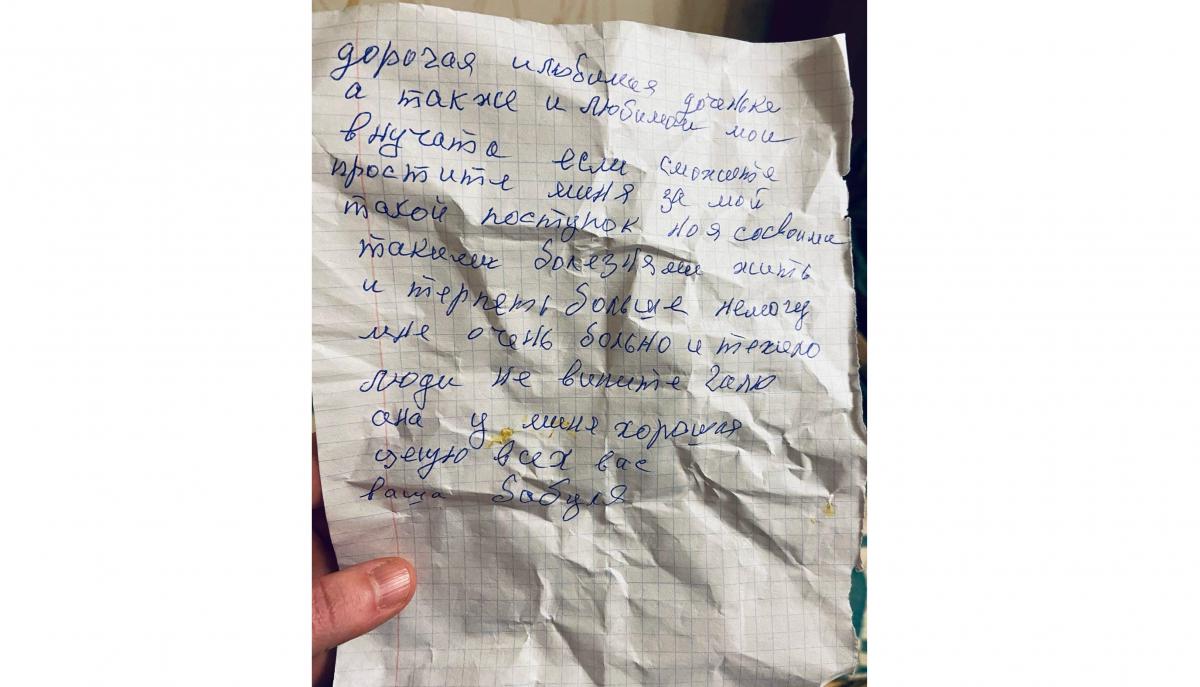 дорогая илюбимая доченька
а также и любимаи мои
внучата если сможите
простите миня за мой
такой поступок но я сосвоими
такими болезнями жить
и терпеть больше немогу
мне очень больно и тежело
люди не вините Галю
она у миня хорошая
целую всех вас
ваша бабуля